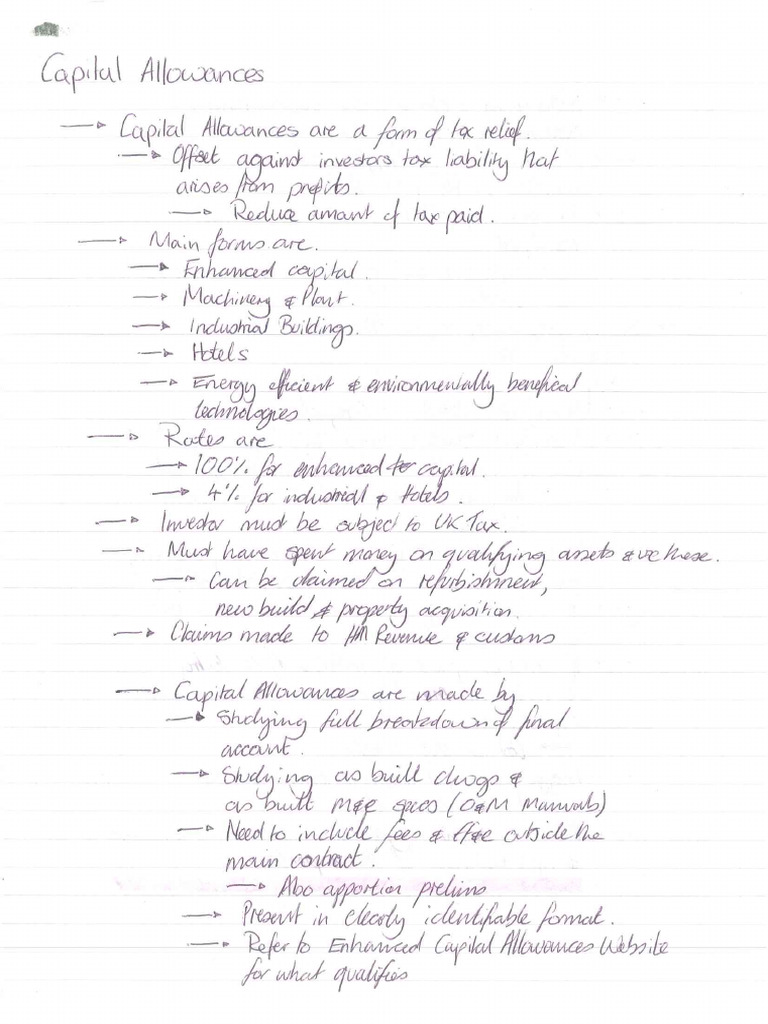 Capital Allowances
→ Capital Allowances are a form of tax relief.
→ Offset against investors tax liability that
arises from profits.
→ Reduce amount of tax paid.
→ Main forms are.
→ Enhanced capital.
→ Machinery & Plant.
→ Industrial Buildings.
→ Hotels
→ Energy efficient & environmentally benefical
technologies.
→ Rates are
→ 100% for enhanced capital.
→ 4% for industrial & Hotels.
→ Investor must be subject to UK Tax.
→ Must have spent money on qualifying assets & use these.
→ Can be claimed on refurbishment,
new build & property acquisition.
→ Claims made to HM Revenue & customs
→ Capital Allowances are made by
→ Studying full breakdown of final
account.
→ Studying as built dwgs &
as built M&E specs (O&M Manuals)
→ Need to include fees & ff&e outside the
main contract.
→ Also apportion prelims
→ Present in clearly identifiable format.
→ Refer to Enhanced Capital Allowances Website
for what qualifies